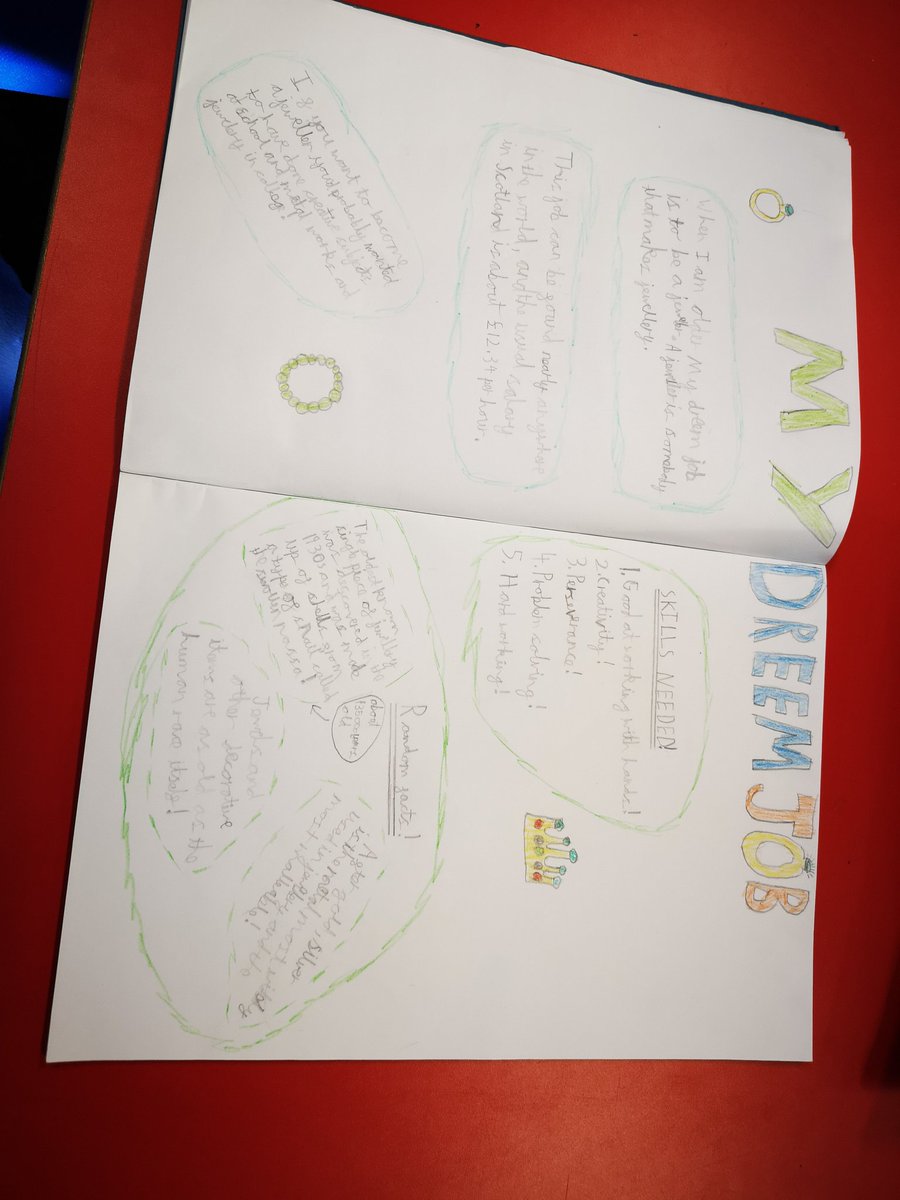 MY DREEM JOB
When I am older My dreem job
is to be a jeweler. A jeweler is somebody
that makes jewellery.
This job can be found nearly anywhere
in the world, and the usual salary
in Scotland is about £12.34 per hour.
If you want to become
a jeweller you'd probably wanted
to have done creative subjects
at school and metal works and
jewelry in collage.
SKILLS NEEDED!
1. Good at working with hands!
2. Creativity!
3. Perseverance!
4. Problem solving!
5. Hard working!
Random facts!
The oldest known
single piece of jewellery
was discovered in the
1930s and was made
up of shells from
a type of small
about
years
old
and
other decorative
items are as old as the
human race itself!
gold
metal, silver
most
most
and